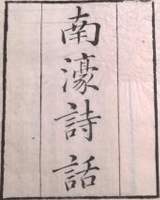 南濠詩話